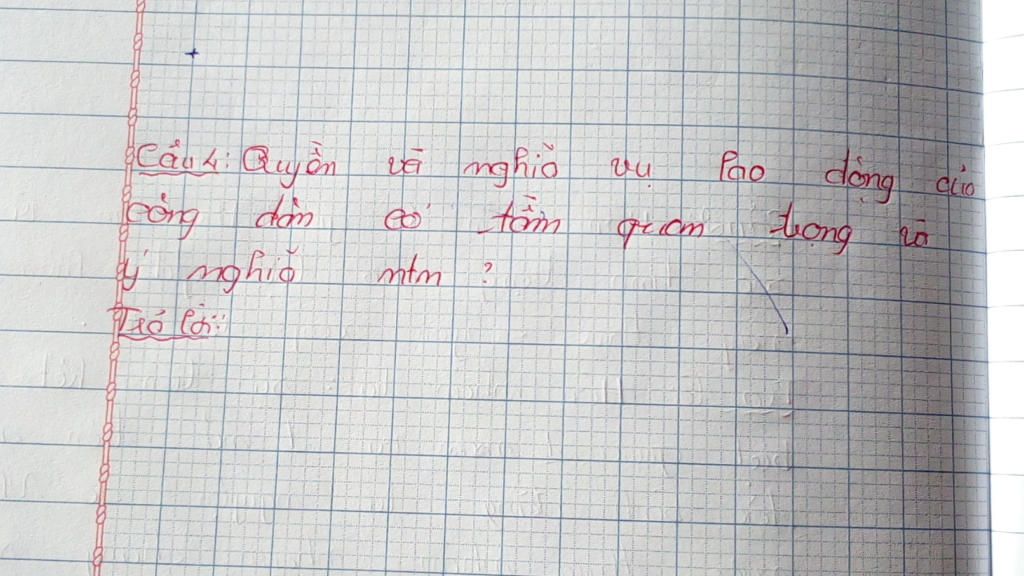 Câu 4: Quyền và nghĩa vụ lao động của
công dân có tầm quan trọng và
ý nghĩa ntn ?
Trả lời: